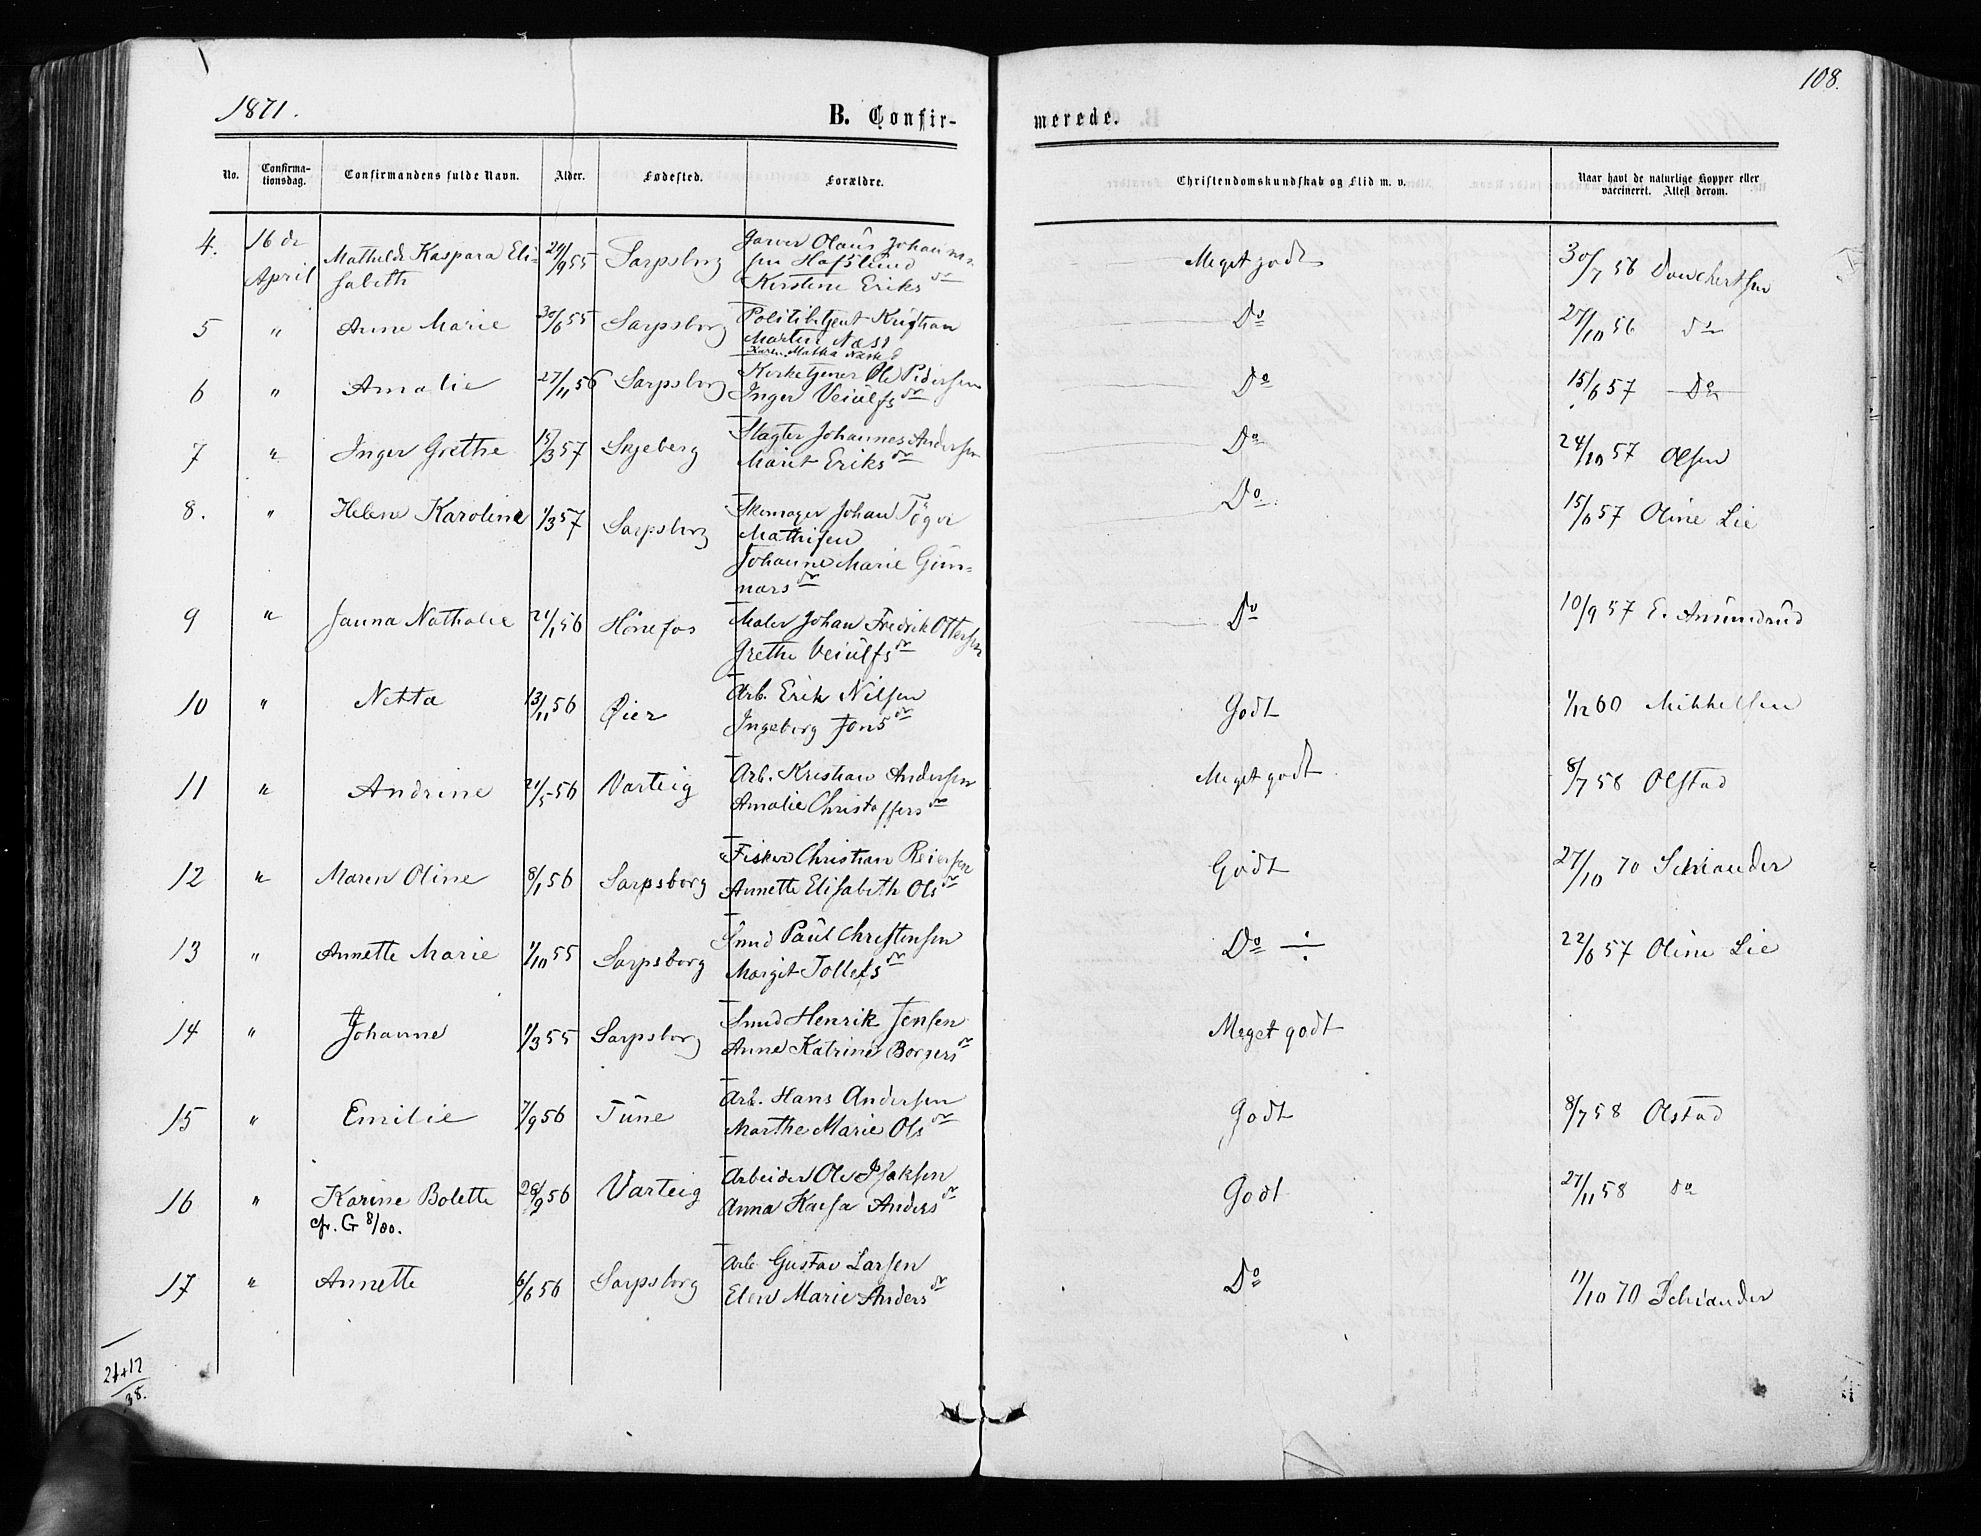 108.
1871.
B. Confir-
merede.
No.
Confirma-
tionsdag.
Confirmandens fulde Navn.
Alder.
Fødested.
Forældre.
Christendomskundskab og Flid m. v.
Naar havt de naturlige Kopper eller
vaccineret. Attest derom.
4. 16de April Mathilde Kaspara Eli-
sabeth 24/9 55 Sarpsborg Garver Olaus Johannes-
sen Hafslund
Kirstine Eriksdr Meget godt 30/7 56
5 " Anne Marie 30/6 55 Sarpsborg Politibetjent Kristian
Martin Næss
Karen Mathea Næss Do 27/10 56 do
6 " Amalie 27/11 56 Sarpsborg Kirketjener Ole Pedersen
Inger Veiulfsdr Do 15/6 57 Do
7 " Inger Grethe 15/3 57 Skjeberg Slagter Johannes Andersen
Marit Eriksdr Do 24/10 57 Olsen
8. " Helene Karoline 1/3 57 Sarpsborg Skomager Johan
Mathisen
Johanne Marie Gun-
narsdr Do. 15/6 57 Oline Lie
9 " Janna Nathalie 21/1 56 Hønefos Maler Johan Fredrik Ottersen
Grethe Veiulfsdr Do 10/9 57 E. Amundrud
10 " Netta 13/11 56 Øier Arb. Erik Nilsen
Ingeborg Jonsdr Godt 1/12 60 Mikkelsen
11 " Andrine 21/5 56 Varteig Arb. Kristian Andersen
Amalie Christoffersdr Meget godt 8/7 58 Olstad
12 " Maren Oline 8/1 56 Sarpsborg Fisker Christian Reiersen
Annette Elisabeth Olsdr Godt 27/10 70 Schiander
13 " Annette Marie 1/10 55 Sarpsborg Smed Paul Christensen
Margit Tollefsdr Do ÷ 22/6 57 Oline Lie
14 " Johanne 1/3 55 Sarpsborg Smed Henrik Jensen
Anne Katrine Borgersdr Meget godt
15 " Emilie 7/9 56 Tune Arb. Hans Andersen
Marthe Marie Olsdr Godt 8/7 58 Olstad
16 " Karine Bolette 28/9 56 Varteig Arbeider Ole Isaksen
cfr. G 8/80. Anna Kaisa Andersdr Godt 27/11 58 do
17 " Annette 6/6 56 Sarpsborg Arb. Gustav Larsen
Elen Marie Andersdr Do 11/10 70 Schiander
21+17
38.